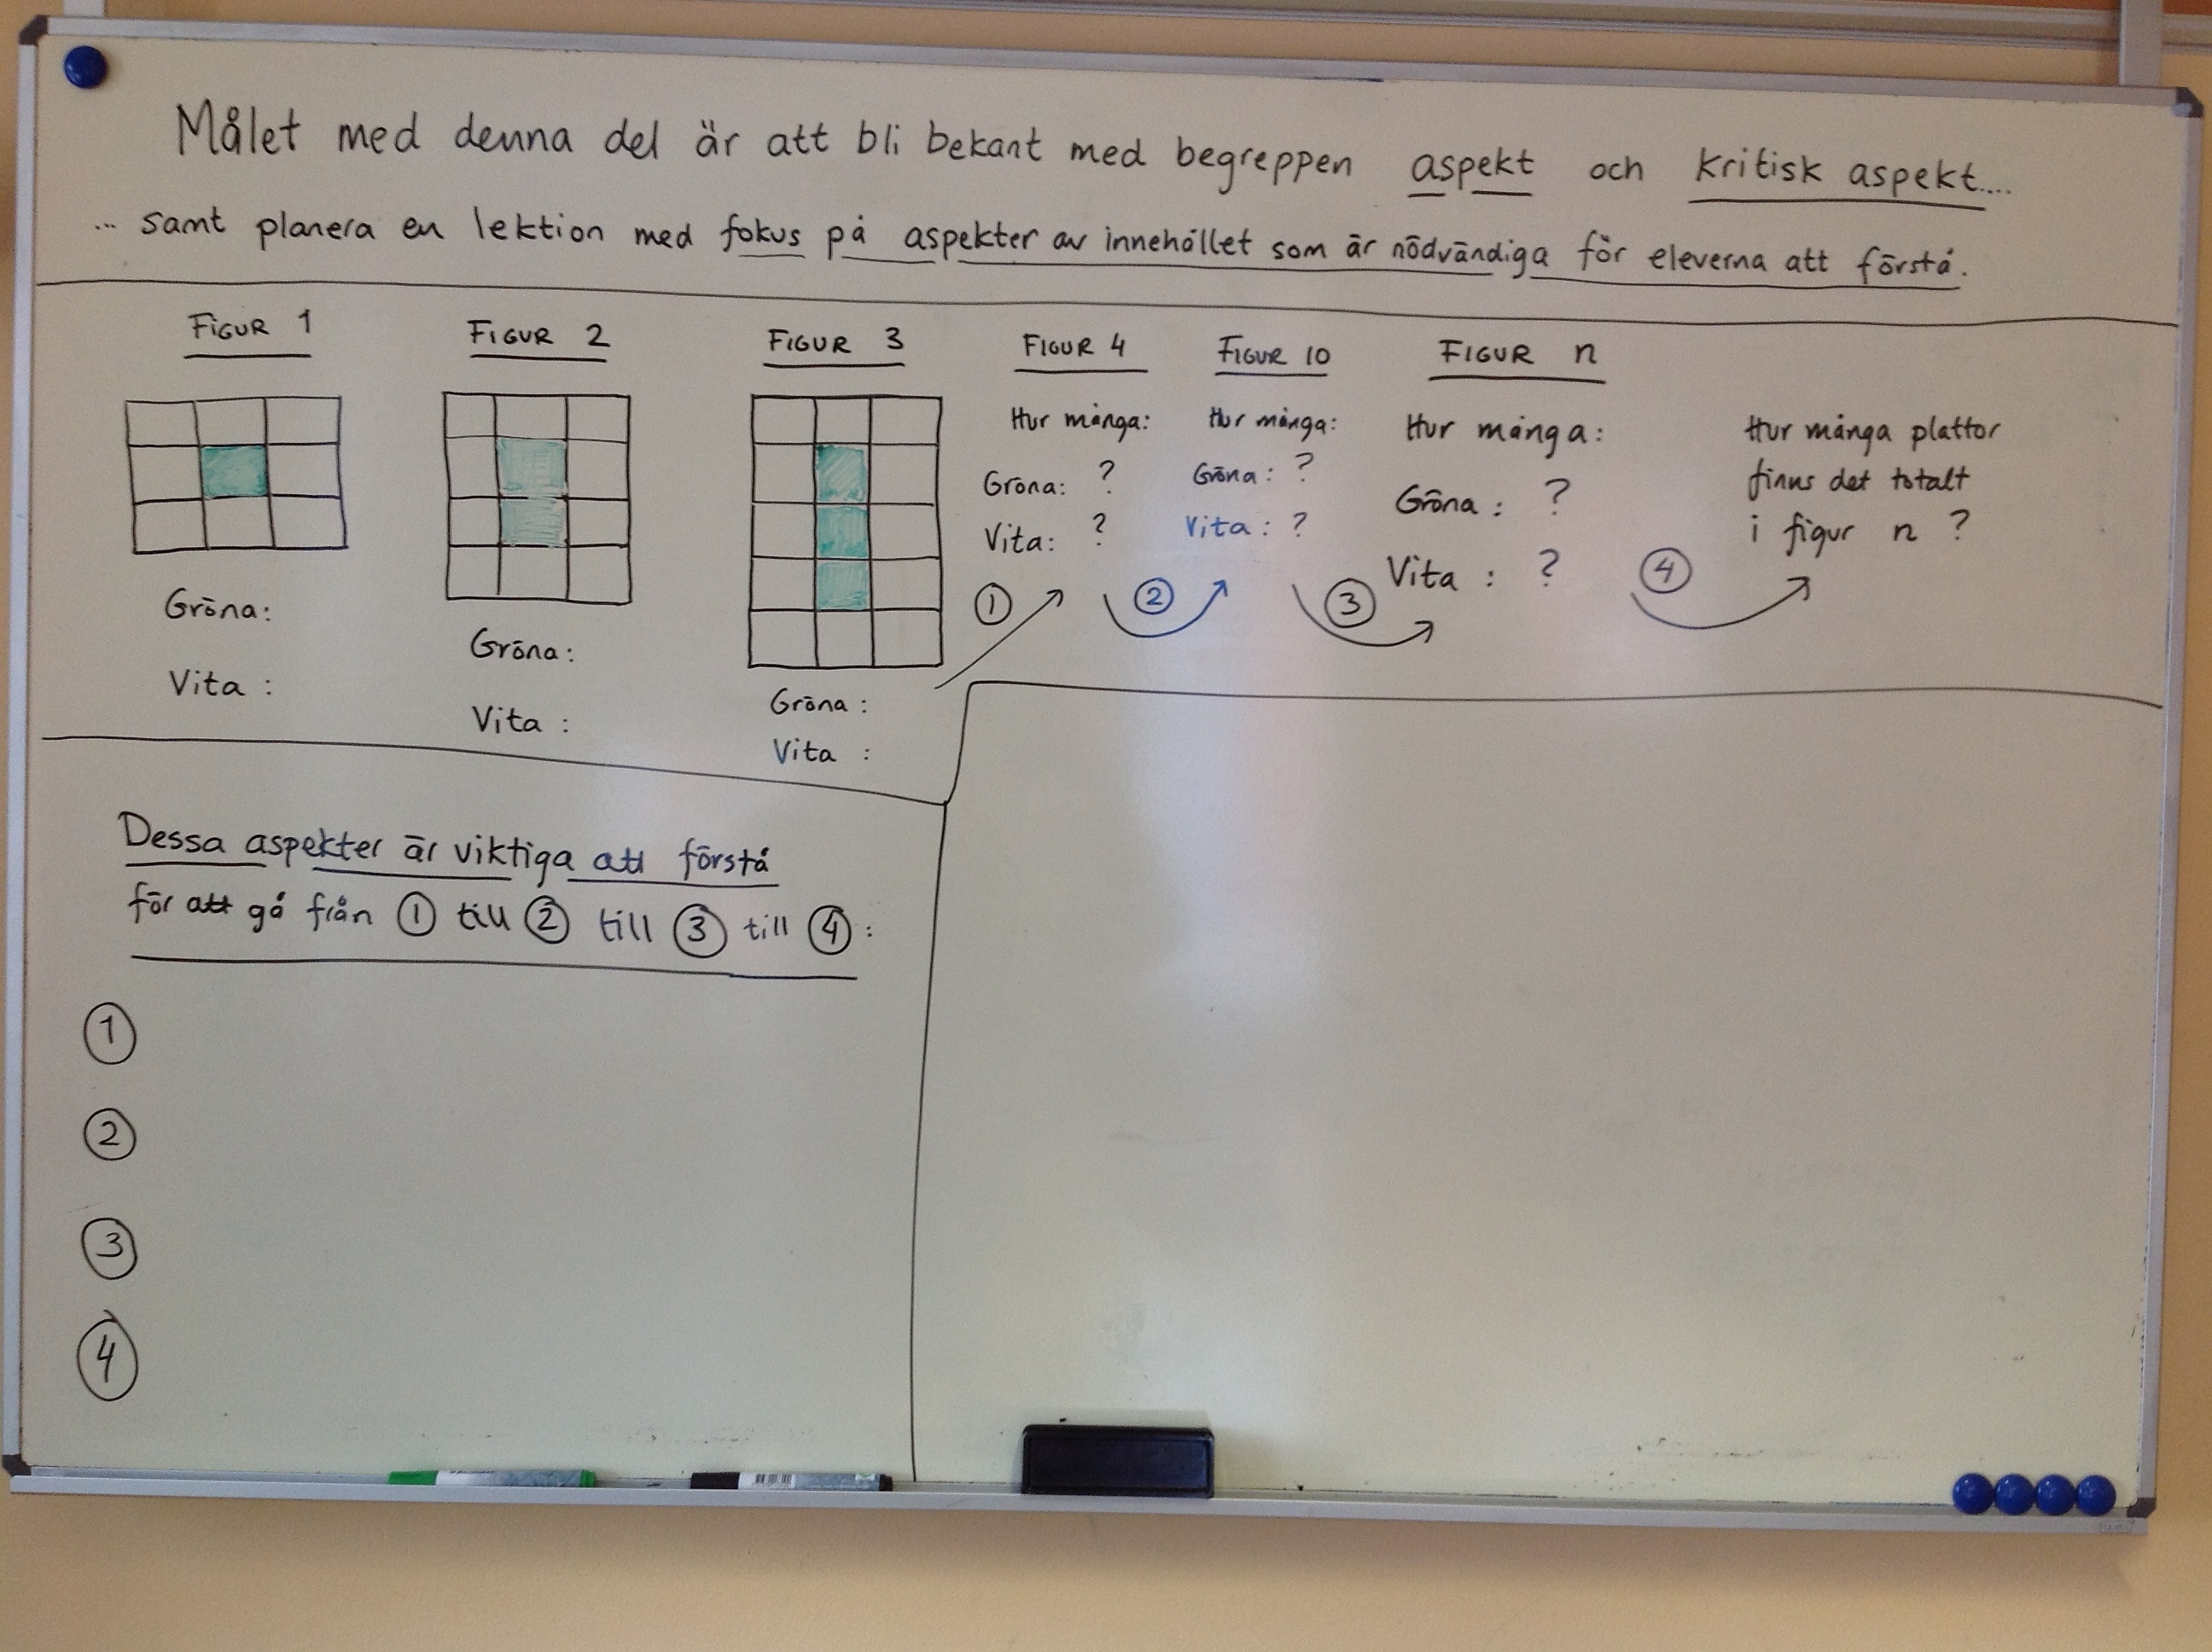 Målet med denna del är att bli bekant med begreppen aspekt och kritisk aspekt....
... samt planera en lektion med fokus på aspekter av innehållet som är nödvändiga för eleverna att förstå.
FIGUR 1
Gröna:
Vita :
FIGUR 2
Gröna:
Vita :
FIGUR 3
Gröna :
Vita :
①
FIGUR 4
Hur många:
Gröna: ?
Vita: ?
②
FIGUR 10
Hur många:
Gröna : ?
Vita : ?
③
FIGUR n
Hur många:
Gröna : ?
Vita : ?
④
Hur många plattor
finns det totalt
i figur n ?
Dessa aspekter är viktiga att förstå
för att gå från ① till ② till ③ till ④ :
①
②
③
④